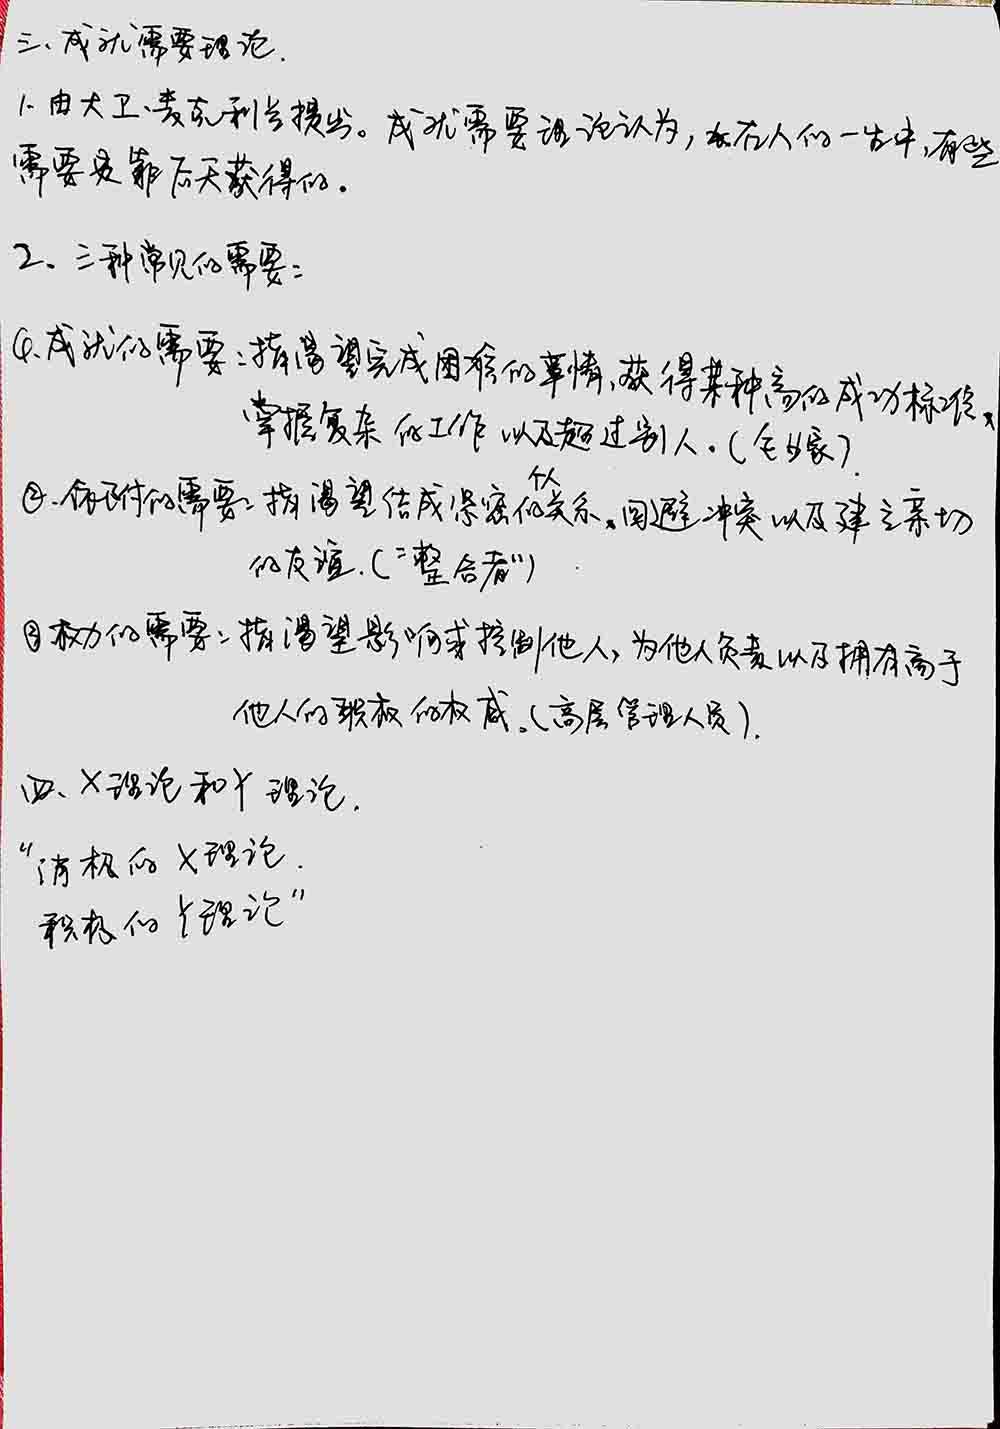 三、成就需要理论.
1、由大卫·麦克利兰提出。成就需要理论认为,在人的一生中,有些
需要是靠后天获得的。
2、三种常见的需要:
①、成就的需要:指渴望完成困难的事情、获得某种高的成功标准、
掌握复杂的工作以及超过别人。(企业家).
②、依附的需要:指渴望结成紧密的个人关系、回避冲突以及建立亲切
的友谊.("整合者")
③权力的需要:指渴望影响或控制他人、为他人负责以及拥有高于
他人的职权的权威。(高层管理人员).
四、X理论和Y理论.
"消极的X理论.
积极的Y理论"